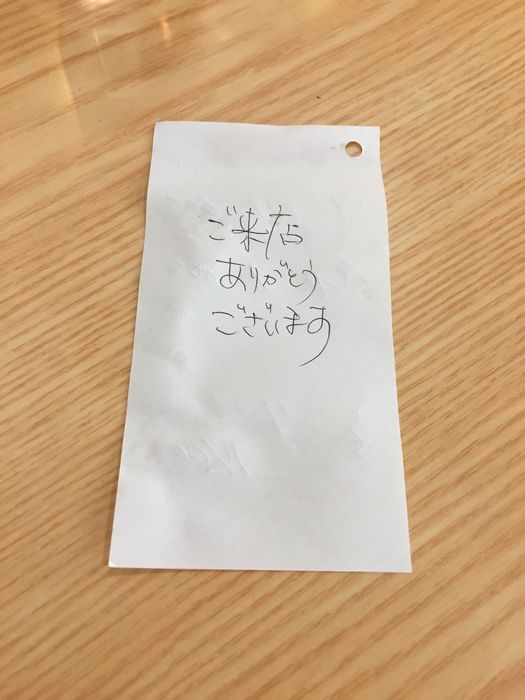 ご来店
ありがとう
ございます